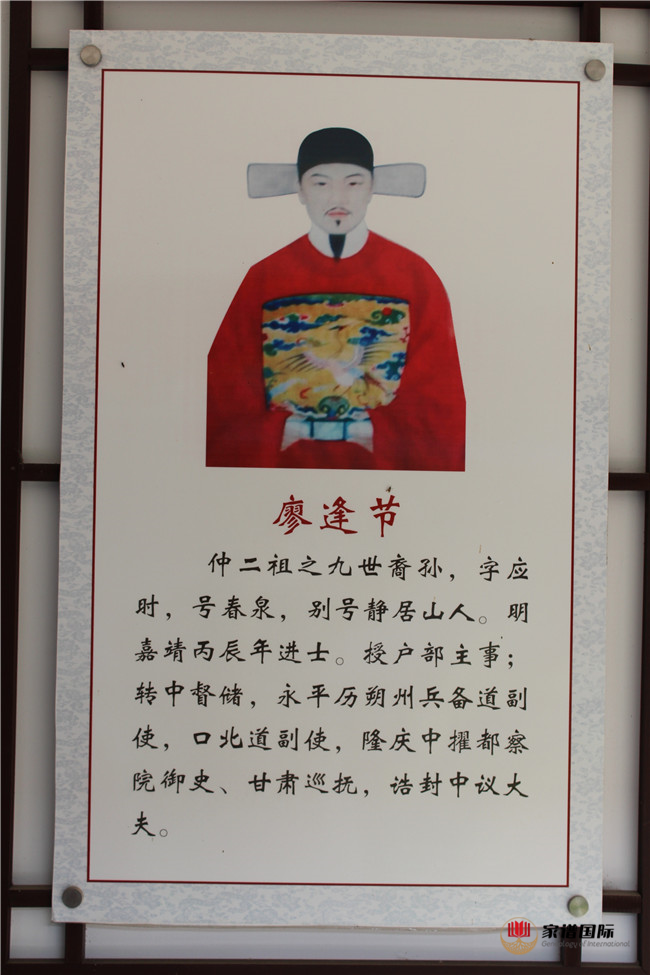 廖逢节
仲二祖之九世裔孙，字应
时，号春泉，别号静居山人。明
嘉靖丙辰年进士。授户部主事；
转中督储，永平历朔州兵备道副
使，口北道副使，隆庆中擢都察
院御史、甘肃巡抚，诰封中议大
夫。
家谱国际
Genealogy of International